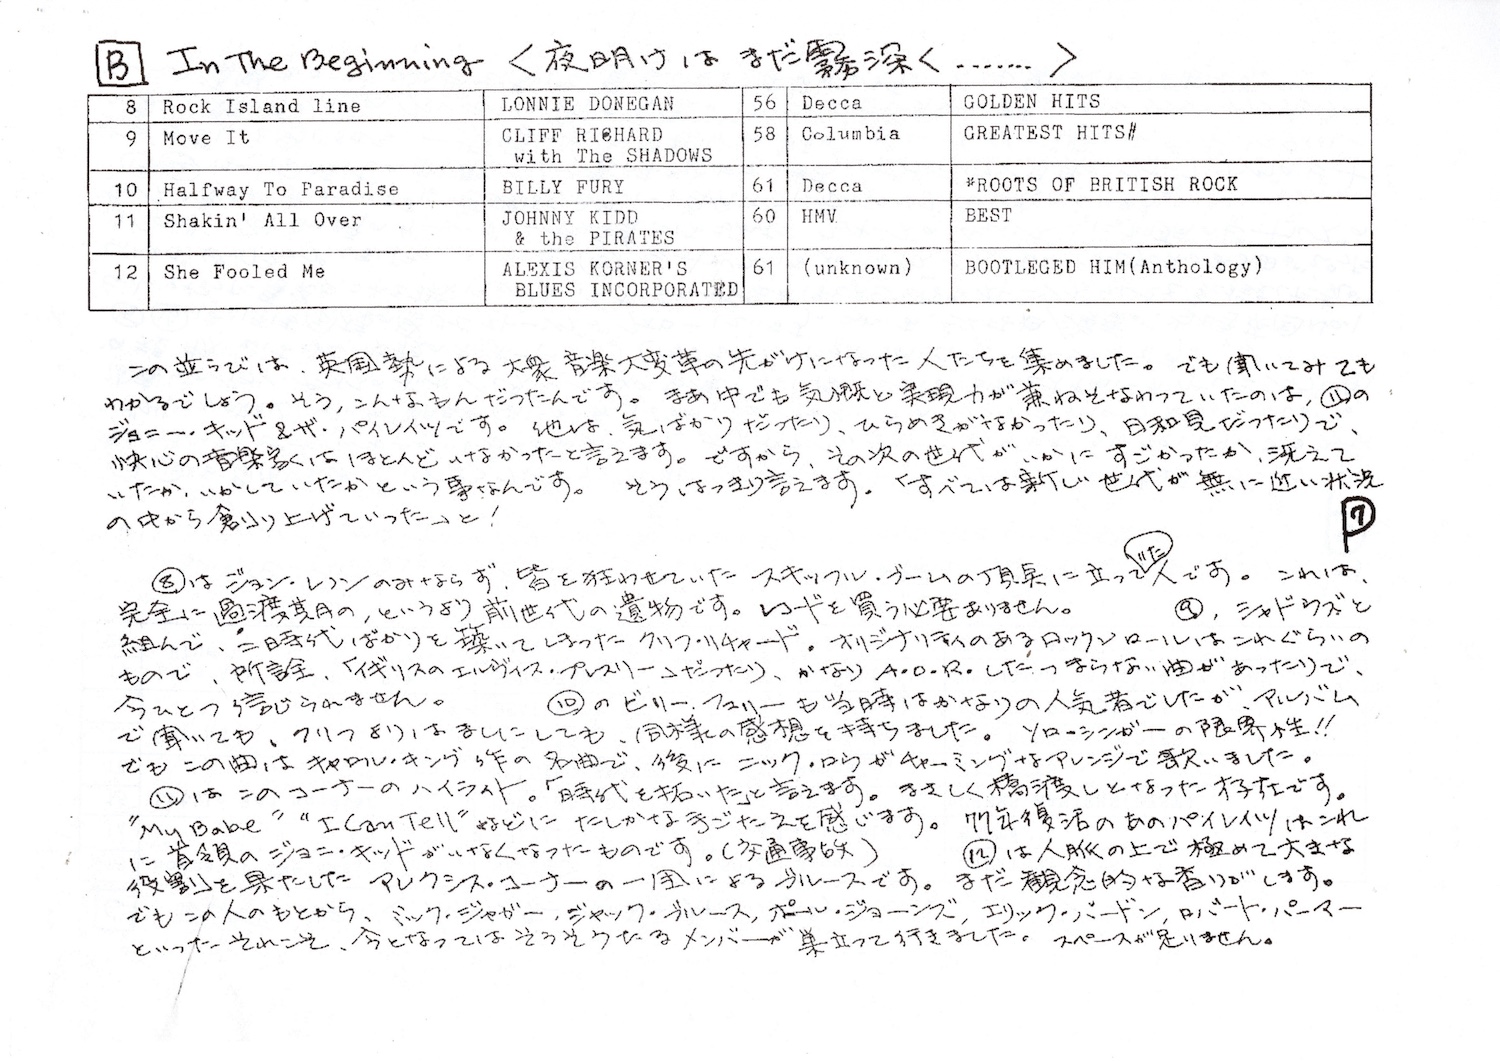 B In The Beginning 〈夜明けは まだ霧深く.......〉
8 Rock Island line LONNIE DONEGAN 56 Decca GOLDEN HITS
9 Move It CLIFF RICHARD 58 Columbia GREATEST HITS#
with The SHADOWS
10 Halfway To Paradise BILLY FURY 61 Decca *ROOTS OF BRITISH ROCK
11 Shakin' All Over JOHNNY KIDD 60 HMV BEST
& the PIRATES
12 She Fooled Me ALEXIS KORNER'S 61 (unknown) BOOTLEGED HIM(Anthology)
BLUES INCORPORATED
この並らびは、英国勢による大衆音楽大変革の先がけになった人たちを集めました。でも聞いてみても
わかるでしょう。そう,こんなもんだったんです。まあ中でも気概と実現力が兼ねそなわっていたのは,⑪の
ジョニー・キッド&ザ・パイレイツです。他は、気ばかりだったり、ひらめきがなかったり、日和見だったりで、
快心の音楽家くはほとんどいなかったと言えます。ですから、その次の世代がいかにすごかったか,冴えて
いたか,いかしていたかという事なんです。 そうはっきり言えます。「すべては新しい世代が無に近い状況
の中から創り上げていった」と!
P7
⑧はジョン・レノンのみならず、皆を狂わせていたスキッフル・ブームの頂点に立っていた人です。これは、
完全に過渡期の,というより前世代の遺物です。レコードを買う必要ありません。 ⑨,シャドウズと
組んで、二時代ばかりを築いてしまったクリフ・リチャード。オリジナリティのあるロックンロールはこれぐらいの
もので、所詮、「イギリスのエルヴィス・プレスリー」だったり、かなりA.O.R.したつまらない曲があったりで、
今ひとつ信じられません。 ⑩のビリー・フューリーも当時はかなりの人気者でしたが、アルバム
で聞いても、クリフよりはましにしても、同様の感想を持ちました。ソロ-シンガーの限界性!!
でもこの曲はキャロル・キング作の名曲で、後にニック・ロウがチャーミングなアレンジで歌いました。
⑪はこのコーナーのハイライト。「時代を拓いた」と言えます。まさしく橋渡しとなった存在です。
"My Babe" "I Can Tell"などにたしかな手ごたえを感じます。77年復活のあのパイレイツはこれ
に首領のジョニ・キッドがいなくなったものです。(交通事故) ⑫は人脈の上で極めて大きな
役割を果たしたアレクシス・コーナーの一団によるブルースです。まだ観念的な香りがします。
でもこの人のもとから、ミック・ジャガー,ジャック・ブルース,ポール・ジョーンズ,エリック・バードン,ロバート・パーマー
といったそれこそ、今となってはそうそうたるメンバーが巣立って行きました。スペースが足りません。